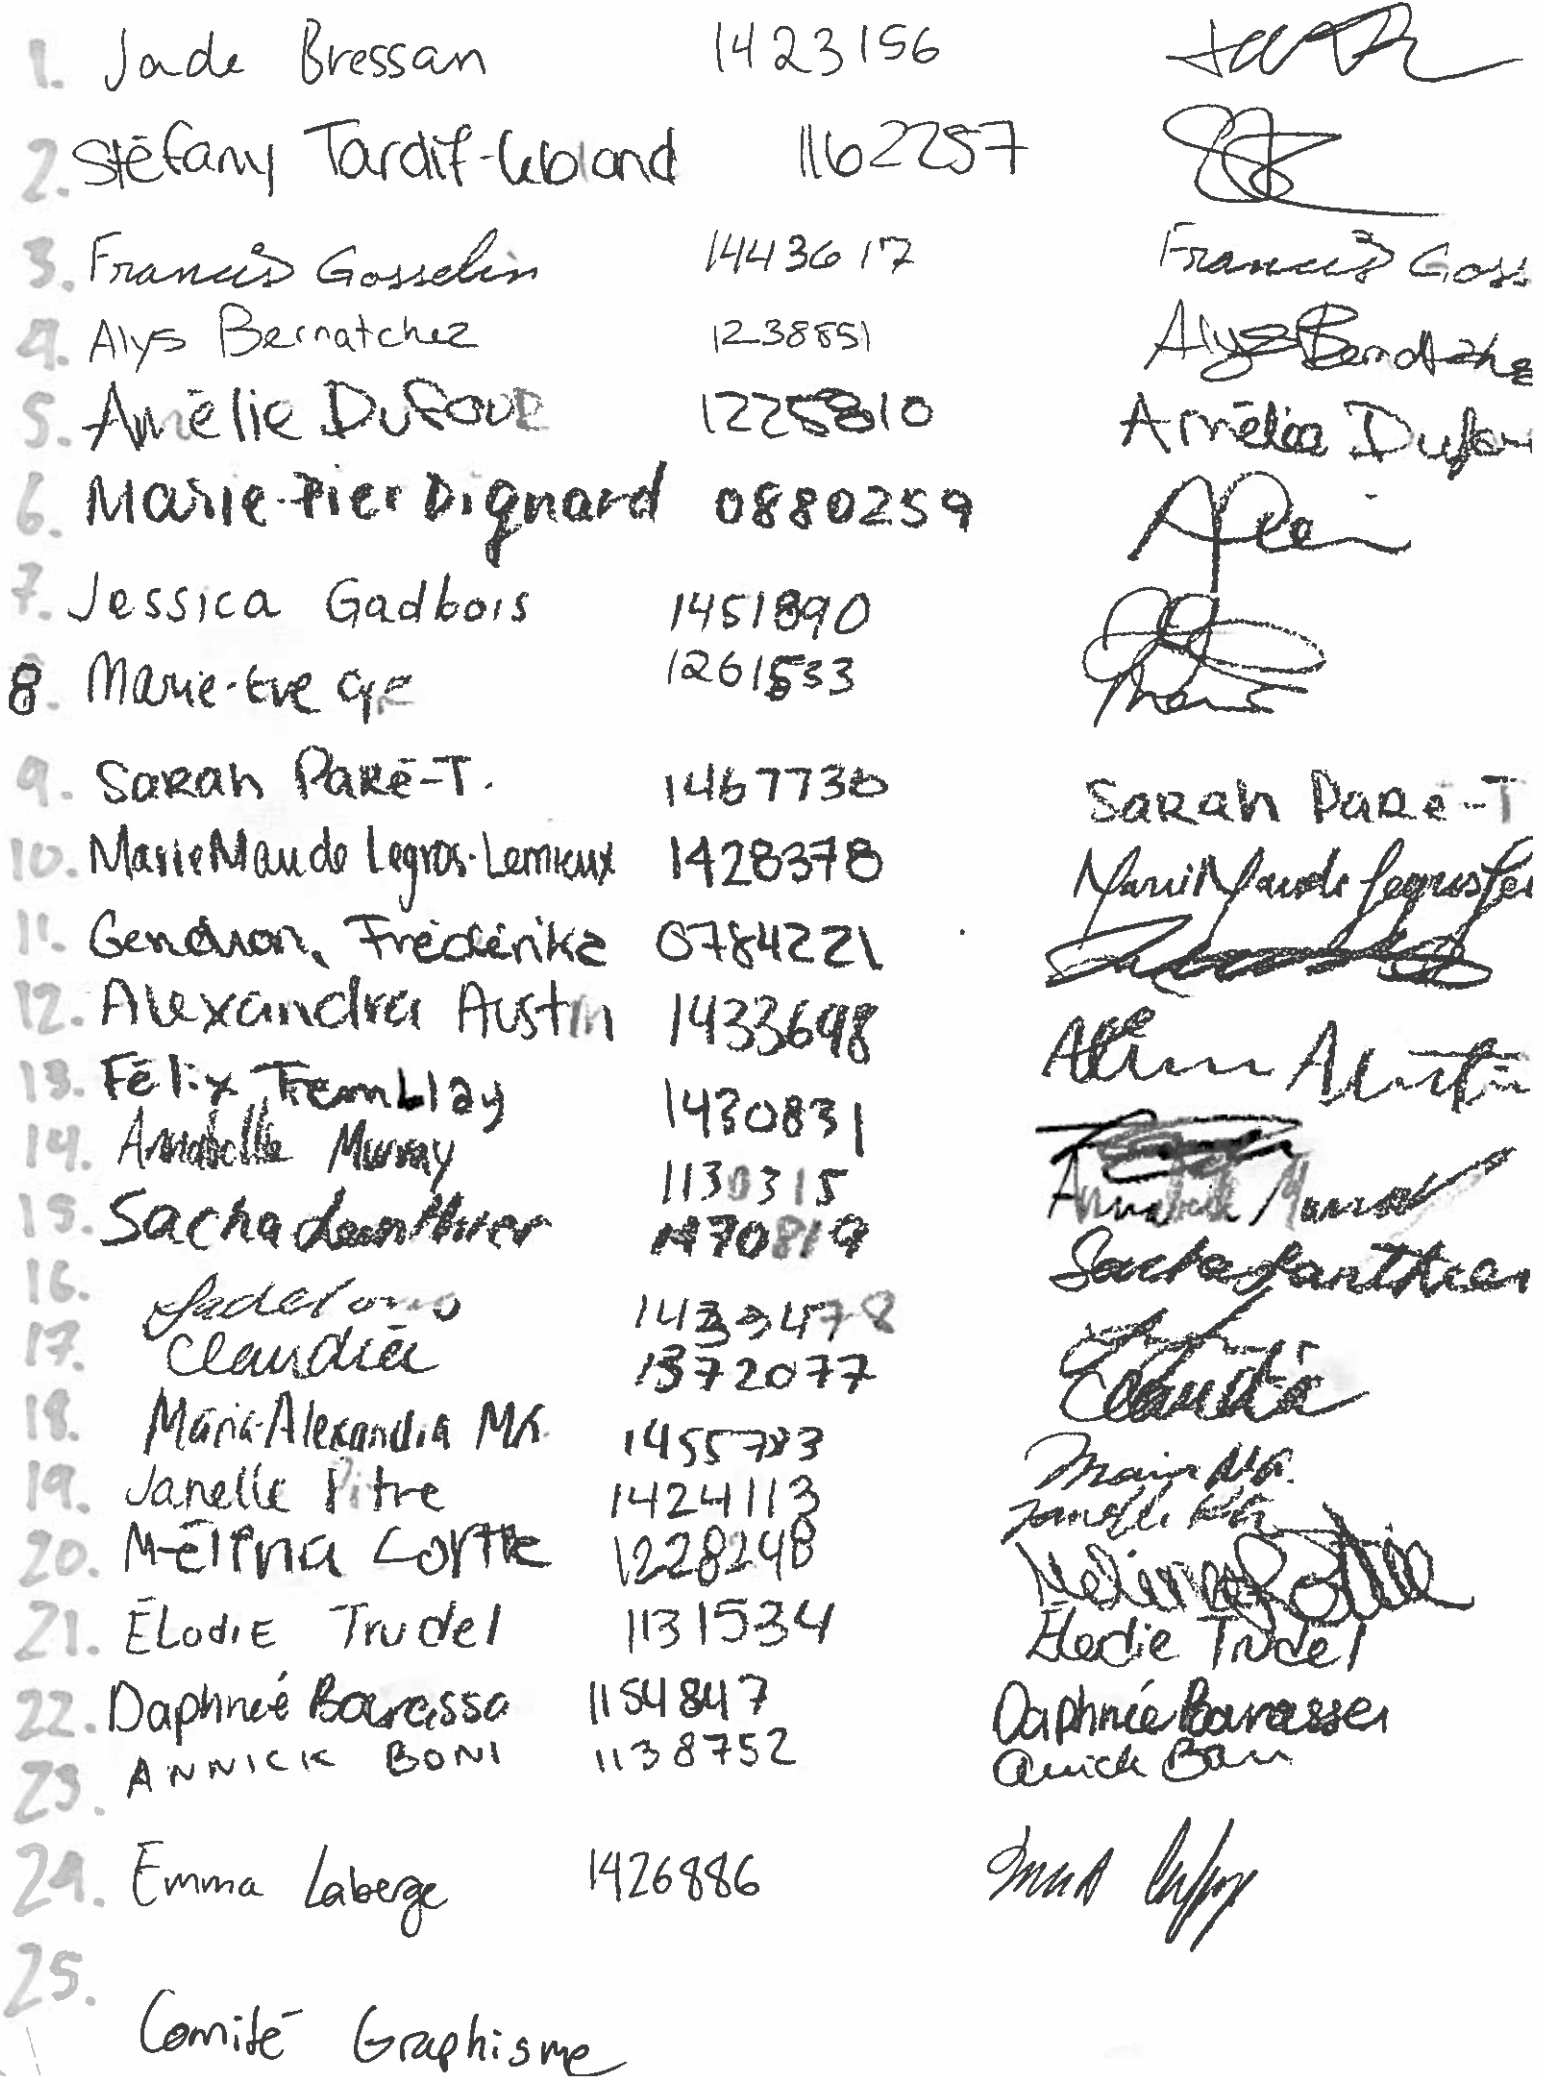 1. Jade Bressan 1423156
2. Stéfany Tardif-Leblond 1162257
3. Francis Gosselin 1443617 Francis Goss
4. Alys Bernatchez 1238851 Alys Bernatche
5. Amélie Dufour 1225810 Amélie Dufou
6. Marie-Pier Dignard 0880259
7. Jessica Gadbois 1451890
8. Marie-Eve Cyr 1261533
9. Sarah Paré-T. 1467730 Sarah Paré-T
10. Marie Maude Legros-Lemieux 1428378 Marie Maude Legros Le
11. Gendron, Frédérike 0784221
12. Alexandra Austin 1433698 Austin
13. Félix Tremblay 1430831
14. Annabelle Murray 1130315 Annabelle
15. Sacha Lanthier 1470819 Sacha Lanthier
16. 1433478
17. Claudia 1372077 Claudia
18. Maria-Alexandra 1455783
19. Janelle Pitre 1424113 Janelle
20. Mélina Lortie 1228248 Mélina
21. Élodie Trudel 1131534 Élodie Trudel
22. Daphnée Barassa 1154847 Daphnée Barassa
23. ANNICK BONI 1138752 Annick
24. Emma Laberge 1426886
25.
Comité Graphisme